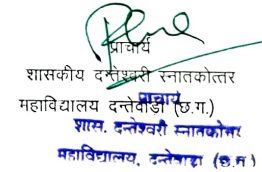 प्राचार्य
शासकीय दन्तेश्वरी स्नातकोत्तर
महाविद्यालय दन्तेवाड़ा (छ.ग.)
प्राचार्य
शास. दन्तेश्वरी स्नातकोत्तर
महाविद्यालय, दन्तेवाड़ा (छ.ग)